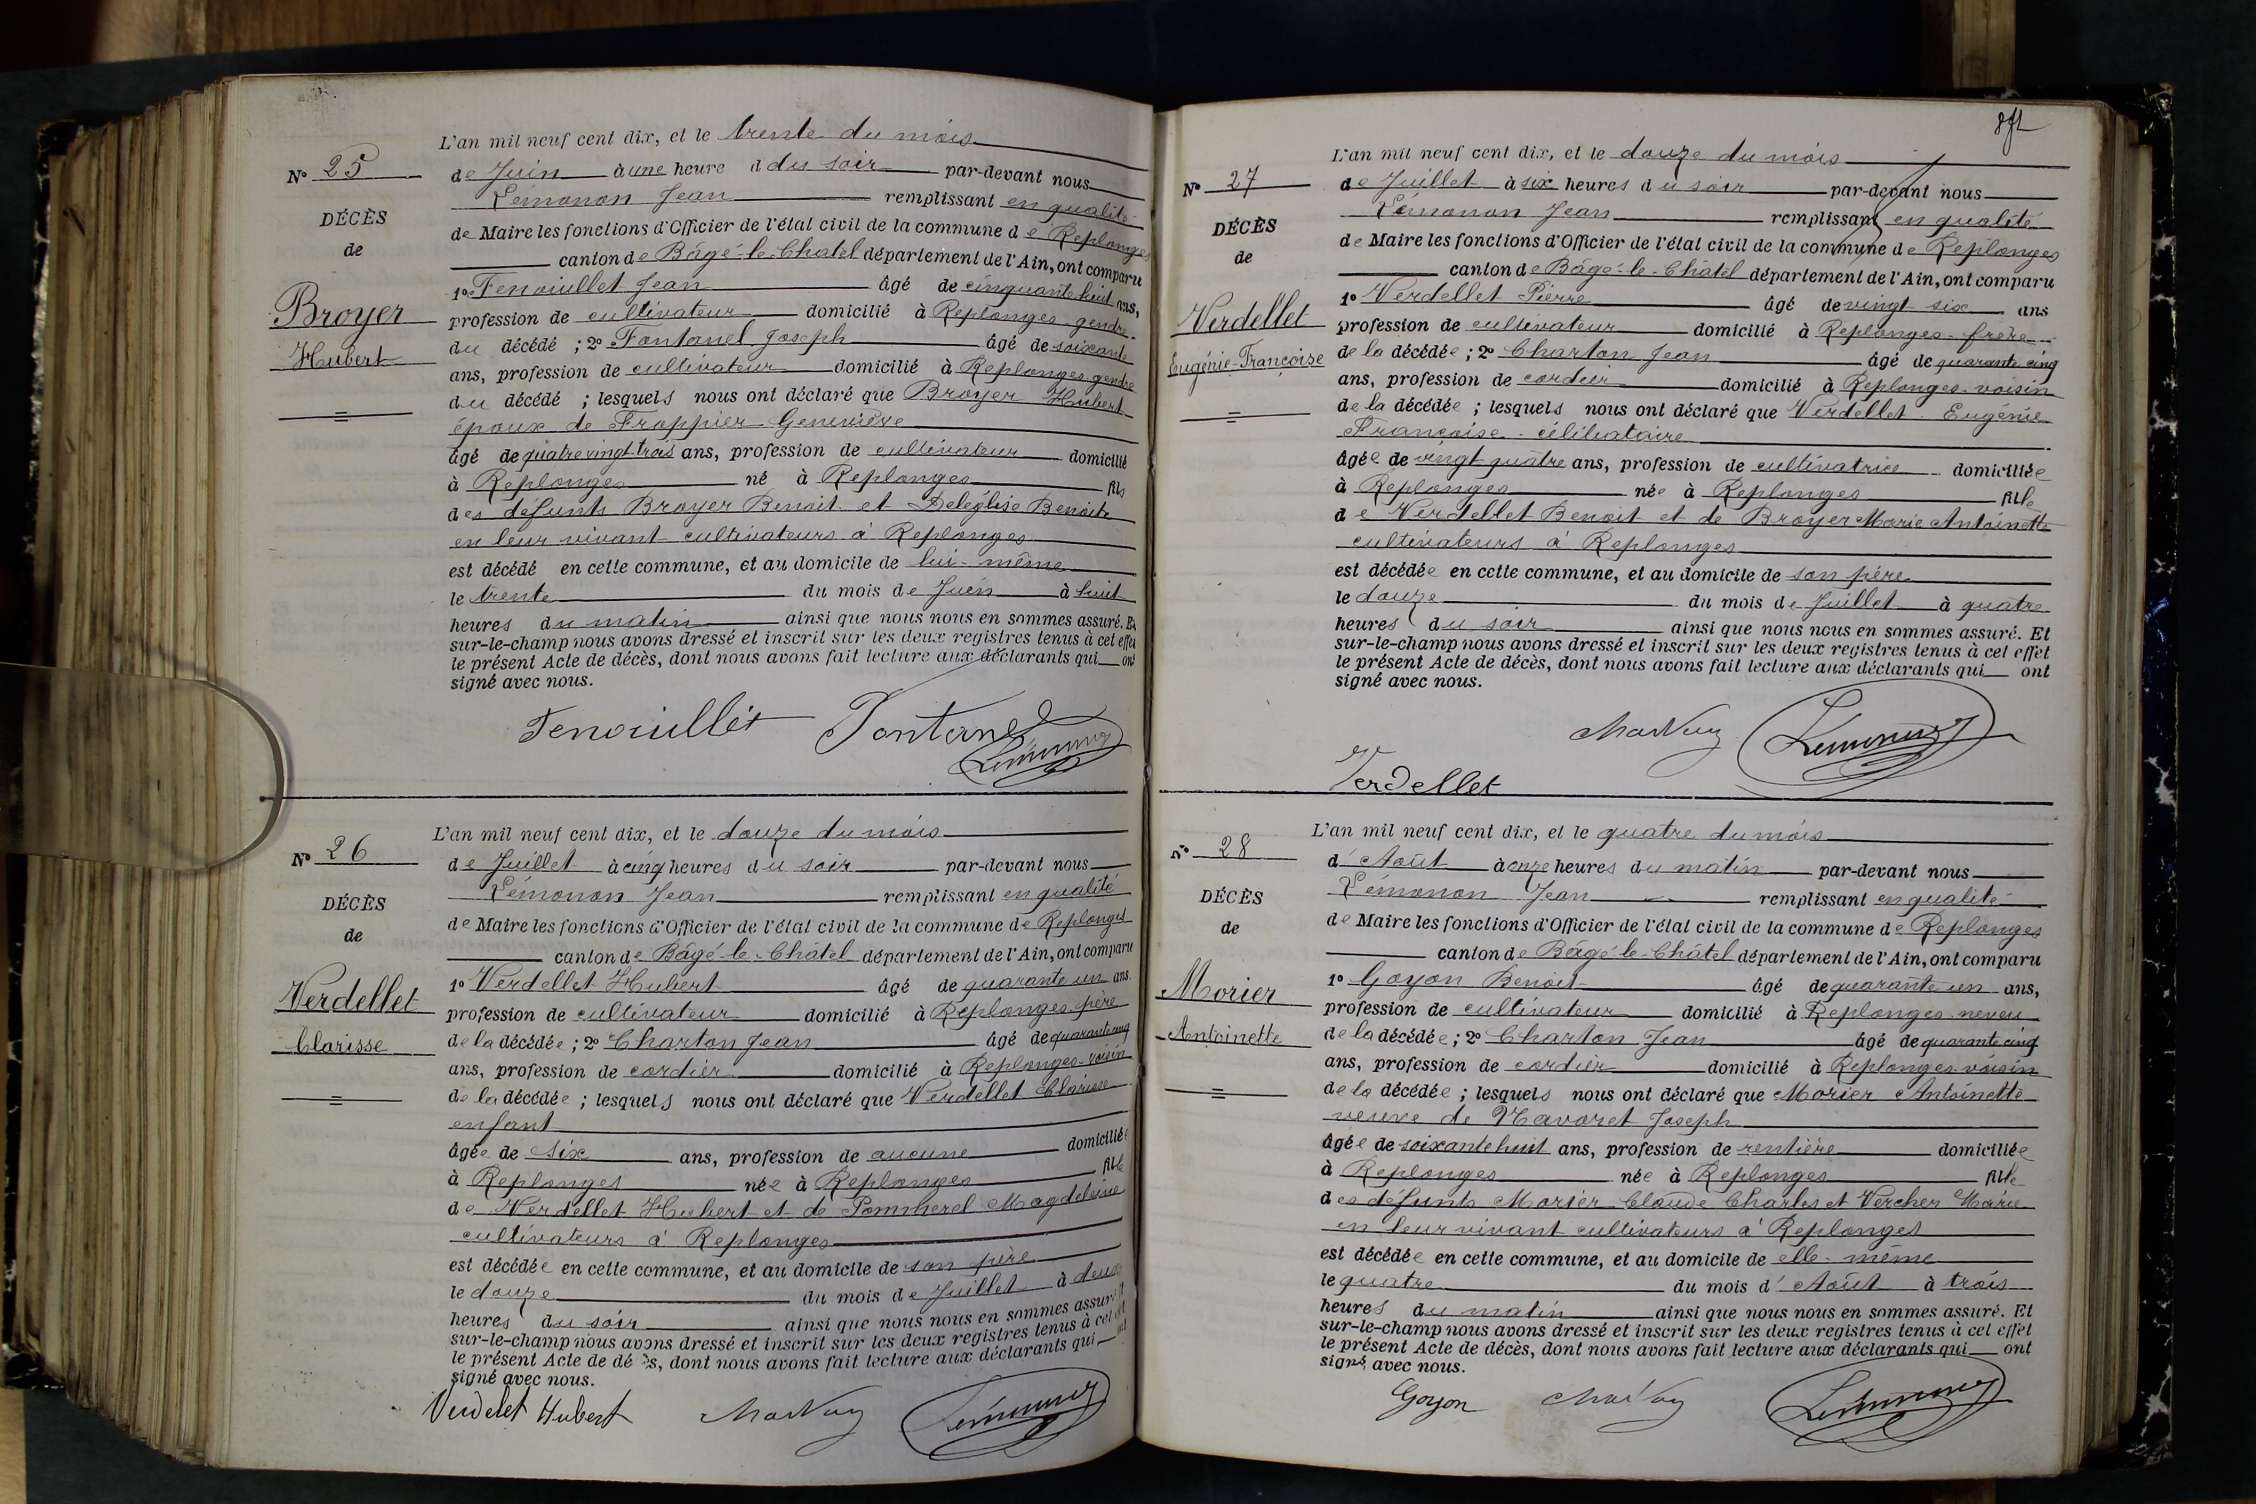 L'an mil neuf cent dix, et le trente du mois
N° 25
de Juin à une heure d du soir par-devant nous
Lémonon Jean remplissant en qualité
DÉCÈS
de Maire les fonctions d'Officier de l'état civil de la commune de Replonges
de
canton de Bâgé-le-Châtel département de l'Ain, ont comparu
1° Fenouillet Jean âgé de cinquante huit ans,
Broyer
profession de cultivateur domicilié à Replonges gendre
Hubert
du décédé ; 2° Fontanel Joseph âgé de soixante
ans, profession de cultivateur domicilié à Replonges gendre
du décédé ; lesquels nous ont déclaré que Broyer Hubert
époux de Frappier Geneviève
âgé de quatre vingt trois ans, profession de cultivateur domicilié
à Replonges né à Replonges fils
des défunts Broyer Benoit et Deléglise Benoite
en leur vivant cultivateurs à Replonges
est décédé en cette commune, et au domicile de lui-même
le trente du mois de Juin à huit
heures du matin ainsi que nous nous en sommes assuré. Et
sur-le-champ nous avons dressé et inscrit sur les deux registres tenus à cet effet
le présent Acte de décès, dont nous avons fait lecture aux déclarants qui ont
signé avec nous.
Fenouillet Fontanel Lémonon
L'an mil neuf cent dix, et le douze du mois
N° 26
de Juillet à cinq heures du soir par-devant nous
Lémonon Jean remplissant en qualité
DÉCÈS
de Maire les fonctions d'Officier de l'état civil de la commune de Replonges
de
canton de Bâgé-le-Châtel département de l'Ain, ont comparu
1° Verdellet Hubert âgé de quarante un ans
Verdellet
profession de cultivateur domicilié à Replonges père
Clarisse
de la décédée ; 2° Charton Jean âgé de quarante cinq
ans, profession de cordier domicilié à Replonges-voisin
de la décédée ; lesquels nous ont déclaré que Verdellet Clarisse
enfant
âgée de six ans, profession de aucune domiciliée
à Replonges née à Replonges fille
de Verdellet Hubert et de Pommerel Magdeleine
cultivateurs à Replonges
est décédée en cette commune, et au domicile de son père
le douze du mois de Juillet à deux
heures du soir ainsi que nous nous en sommes assuré. Et
sur-le-champ nous avons dressé et inscrit sur les deux registres tenus à cet effet
le présent Acte de décès, dont nous avons fait lecture aux déclarants qui ont
signé avec nous.
Verdelet Hubert Lémonon
L'an mil neuf cent dix, et le douze du mois
N° 27
de Juillet à six heures du soir par-devant nous
Lémonon Jean remplissant en qualité
DÉCÈS
de Maire les fonctions d'Officier de l'état civil de la commune de Replonges
de
canton de Bâgé-le-Châtel département de l'Ain, ont comparu
1° Verdellet Pierre âgé de vingt six ans
Verdellet
profession de cultivateur domicilié à Replonges-frère
Eugénie-Françoise
de la décédée ; 2° Charton Jean âgé de quarante cinq
ans, profession de cordier domicilié à Replonges-voisin
de la décédée ; lesquels nous ont déclaré que Verdellet Eugénie
Françoise-célibataire
âgée de vingt quatre ans, profession de cultivatrice domiciliée
à Replonges née à Replonges fille
de Verdellet Benoit et de Broyer Marie Antoinette
cultivateurs à Replonges
est décédée en cette commune, et au domicile de son père
le douze du mois de Juillet à quatre
heures du soir ainsi que nous nous en sommes assuré. Et
sur-le-champ nous avons dressé et inscrit sur les deux registres tenus à cet effet
le présent Acte de décès, dont nous avons fait lecture aux déclarants qui ont
signé avec nous.
Lémonon
Verdellet
L'an mil neuf cent dix, et le quatre du mois
N° 28
d'Août à onze heures du matin par-devant nous
Lémonon Jean remplissant en qualité
DÉCÈS
de Maire les fonctions d'Officier de l'état civil de la commune de Replonges
de
canton de Bâgé-le-Châtel département de l'Ain, ont comparu
1° Goyon Benoit âgé de quarante un ans,
Morier
profession de cultivateur domicilié à Replonges neveu
Antoinette
de la décédée ; 2° Charton Jean âgé de quarante cinq
ans, profession de cordier domicilié à Replonges voisin
de la décédée ; lesquels nous ont déclaré que Morier Antoinette
veuve de Navoret Joseph
âgée de soixante huit ans, profession de rentière domiciliée
à Replonges née à Replonges fille
des défunts Morier Claude Charles et Vercher Marie
en leur vivant cultivateurs à Replonges
est décédée en cette commune, et au domicile de elle-même
le quatre du mois d'Août à trois
heures du matin ainsi que nous nous en sommes assuré. Et
sur-le-champ nous avons dressé et inscrit sur les deux registres tenus à cet effet
le présent Acte de décès, dont nous avons fait lecture aux déclarants qui ont
signé avec nous.
Goyon Lémonon